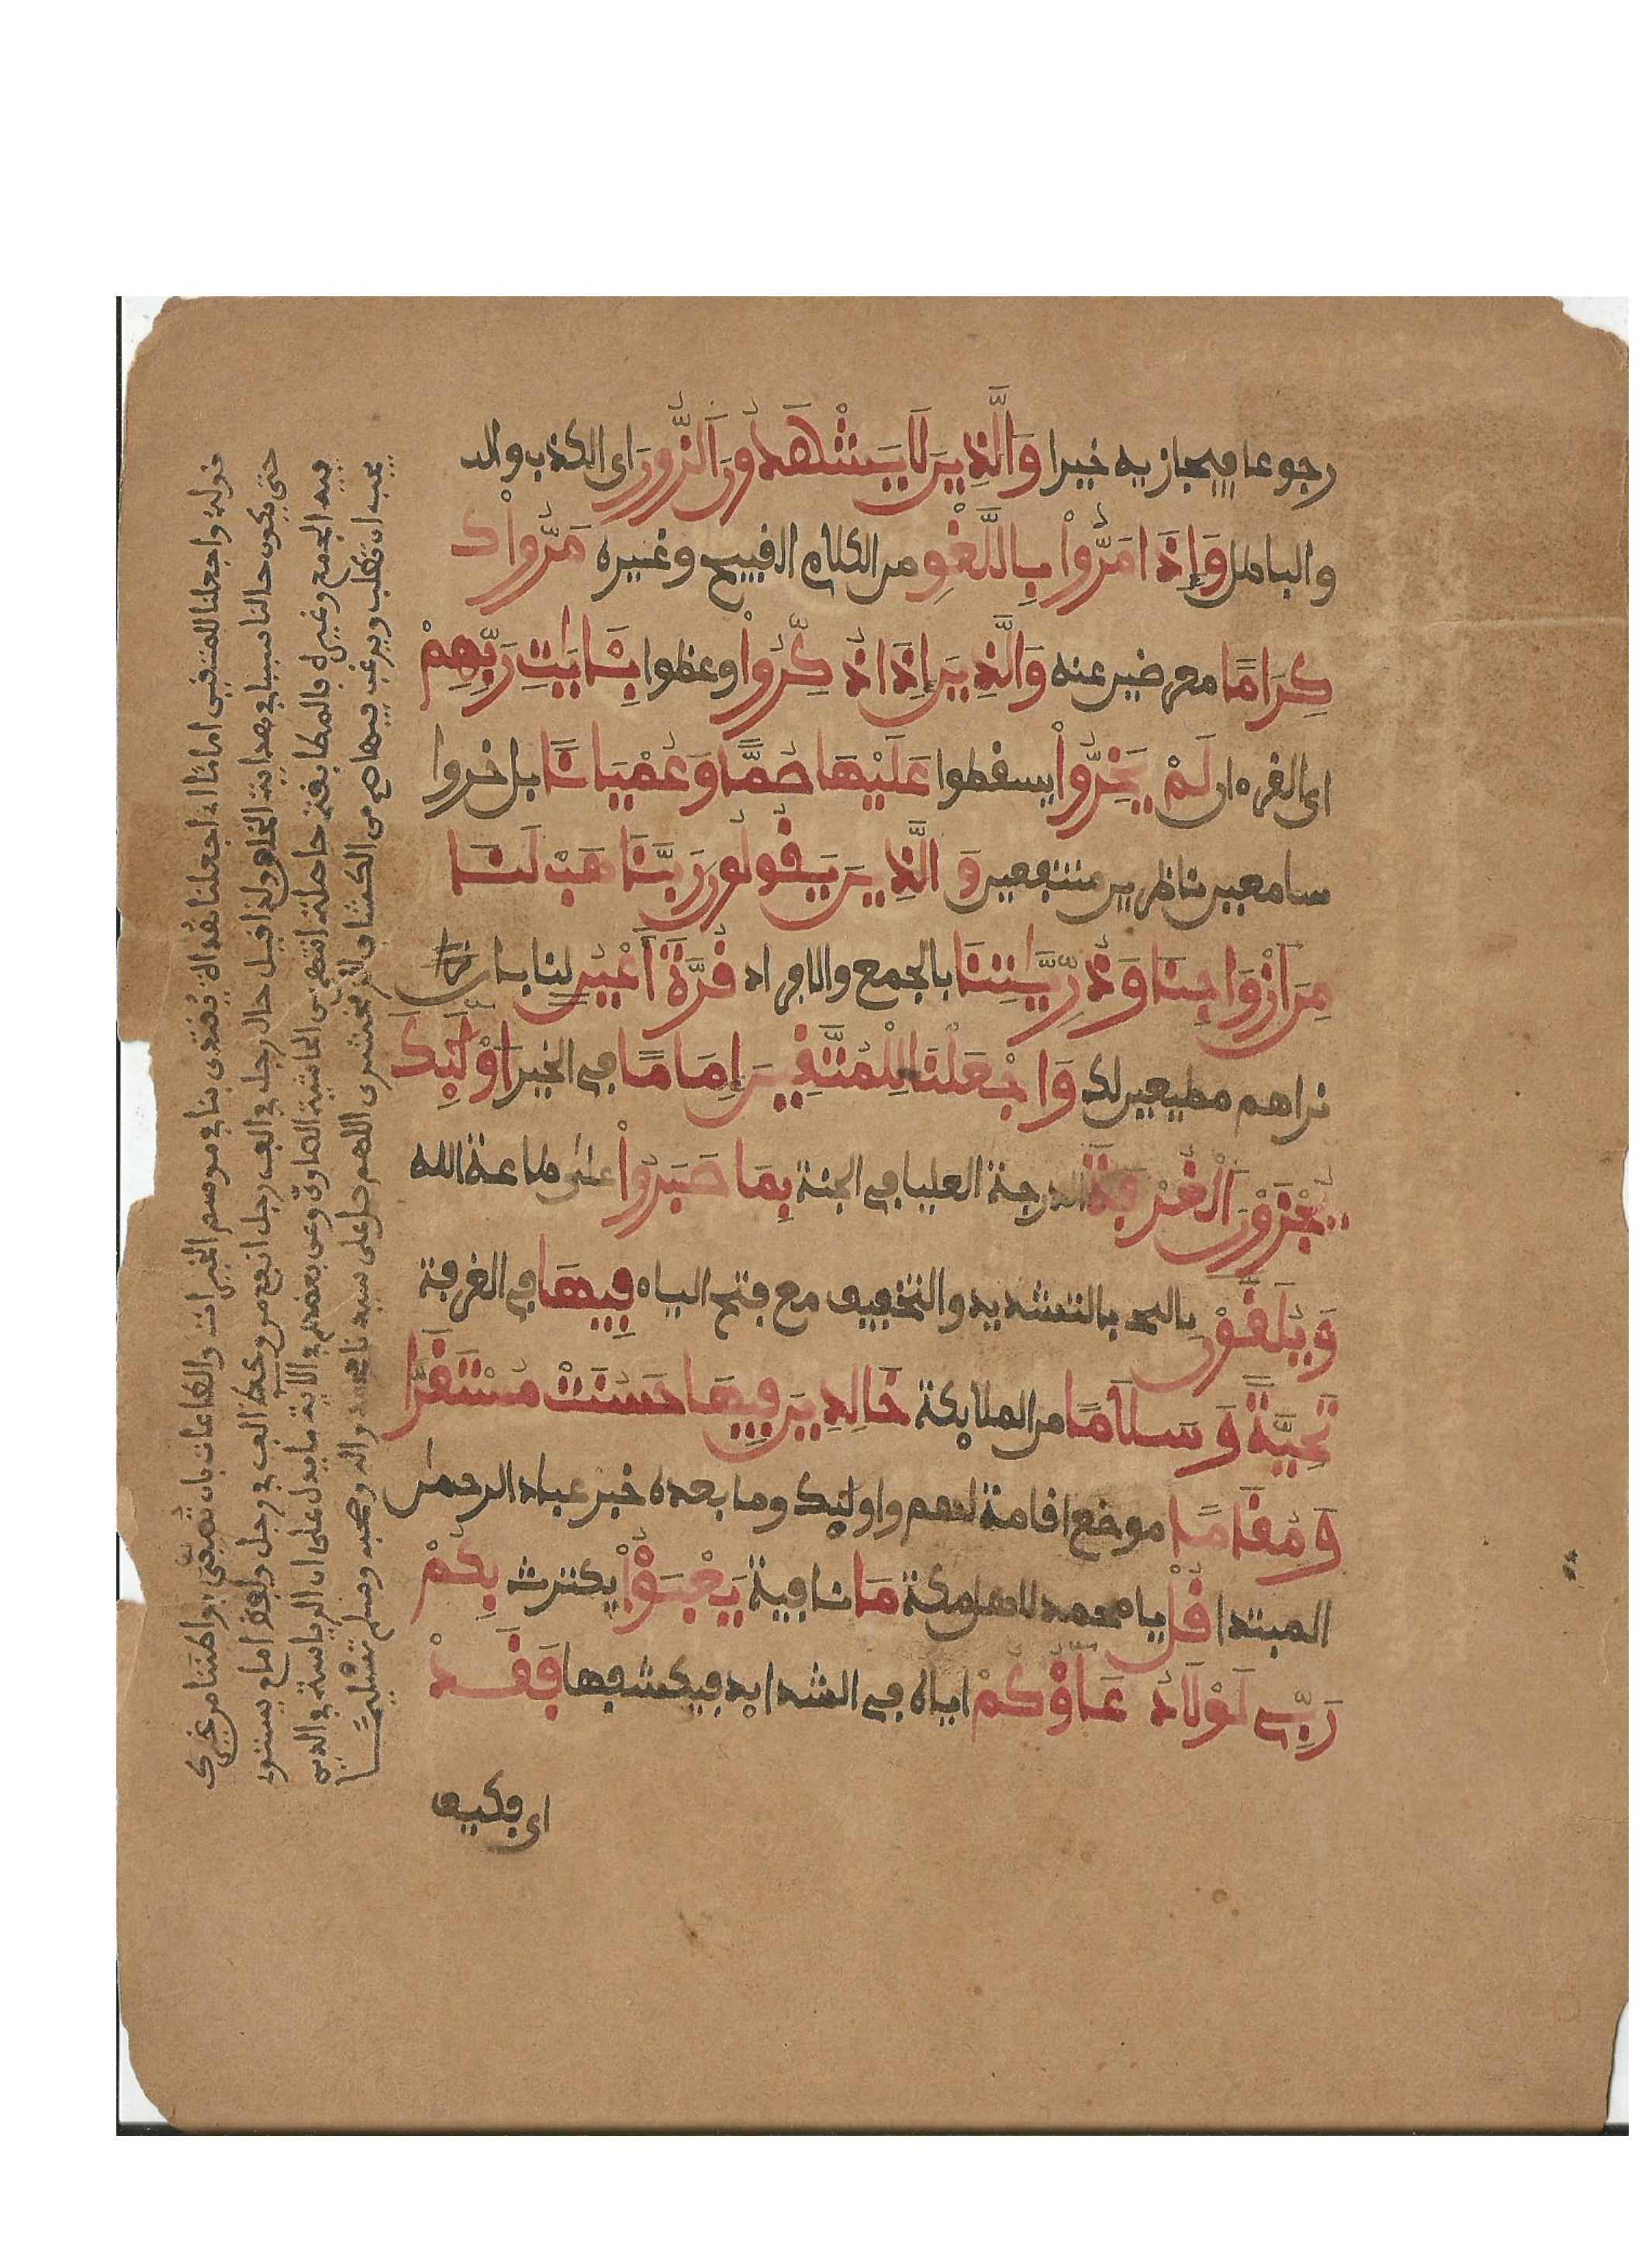 رجوعا فيجازيه خيرا وَالَّذِينَ لَا يَشْهَدُونَ اَلزُّورَ اى الكذب والد
والباطل وَإِذَا مَرُّواْ بِاللَّغْوِ من الكلام القبيح وغيره مَرُّواْ كِـ
كِرَامًا معرضين عنه وَالَّذِينَ إِذَا ذُكِّرُواْ وعظوا بِـَٔايَٰتِ رَبِّهِمْ
اى القرءان لَمْ يَخِرُّواْ يسقطوا عَلَيْهَا صُمًّا وَعُمْيَانًا بل خروا
سامعين ناظرين منتفعين وَالَّذِينَ يَقُولُونَ رَبَّنَا هَبْ لَنَا
مِنَ اَزْوَاجِنَا وَذُرِّيَّٰتِنَا بالجمع والافراد قُرَّةَ أَعْيُنٍ لنا بان
نراهم مطيعين لك وَاجْعَلْنَا لِلْمُتَّقِينَ إِمَامًا في الخير اوْلَٰئِكَ
يُجْزَوْنَ اَلْغُرْفَةَ الدرجة العليا في الجنة بِمَا صَبَرُواْ على طاعة الله
وَيُلَقَّوْنَ بالتشديد والتخفيف مع فتح الياء فِيهَا في الغرفة
تَحِيَّةً وَسَلَامًا من الملائكة خَالِدِينَ فِيهَا حَسُنَتْ مُسْتَقَرًّا
وَمُقَامًا موضع اقامة لهم واولئك وما بعده خبر عباد الرحمن
المبتدا قُلْ يا محمد لاهل مكة مَا نافية يَعْبَؤُاْ يكترث بِكُمْ
رَبِّي لَوْلَا دُعَاؤُكُمْ اياه في الشدايد فيكشفها فَقَدْ
اى فكيف
قوله واجعلنا للمتقين اماما اى اجعلنا هداة يقتدى بنا في موسم الخيرات والطاعات بان تصفى بواطننا من غيرك
حتى يكون حالنا سببا في هداية الخلق ولذا قيل حال رجل في الف رجل انفع من وعظ الف في رجل ولفظ امام يستوى
فيه الجمع وغيره فالمطابقة حاصلة انتهى من الحاشية الصاوى وعن بعضهم في الاية ما يدل على ان الرياسة في الدين
يجب ان تطلب ويرغب فيها صح من الكشاف للزمخشرى اللهم صل على سيدنا محمد واله وصحبه وسلم تسليما